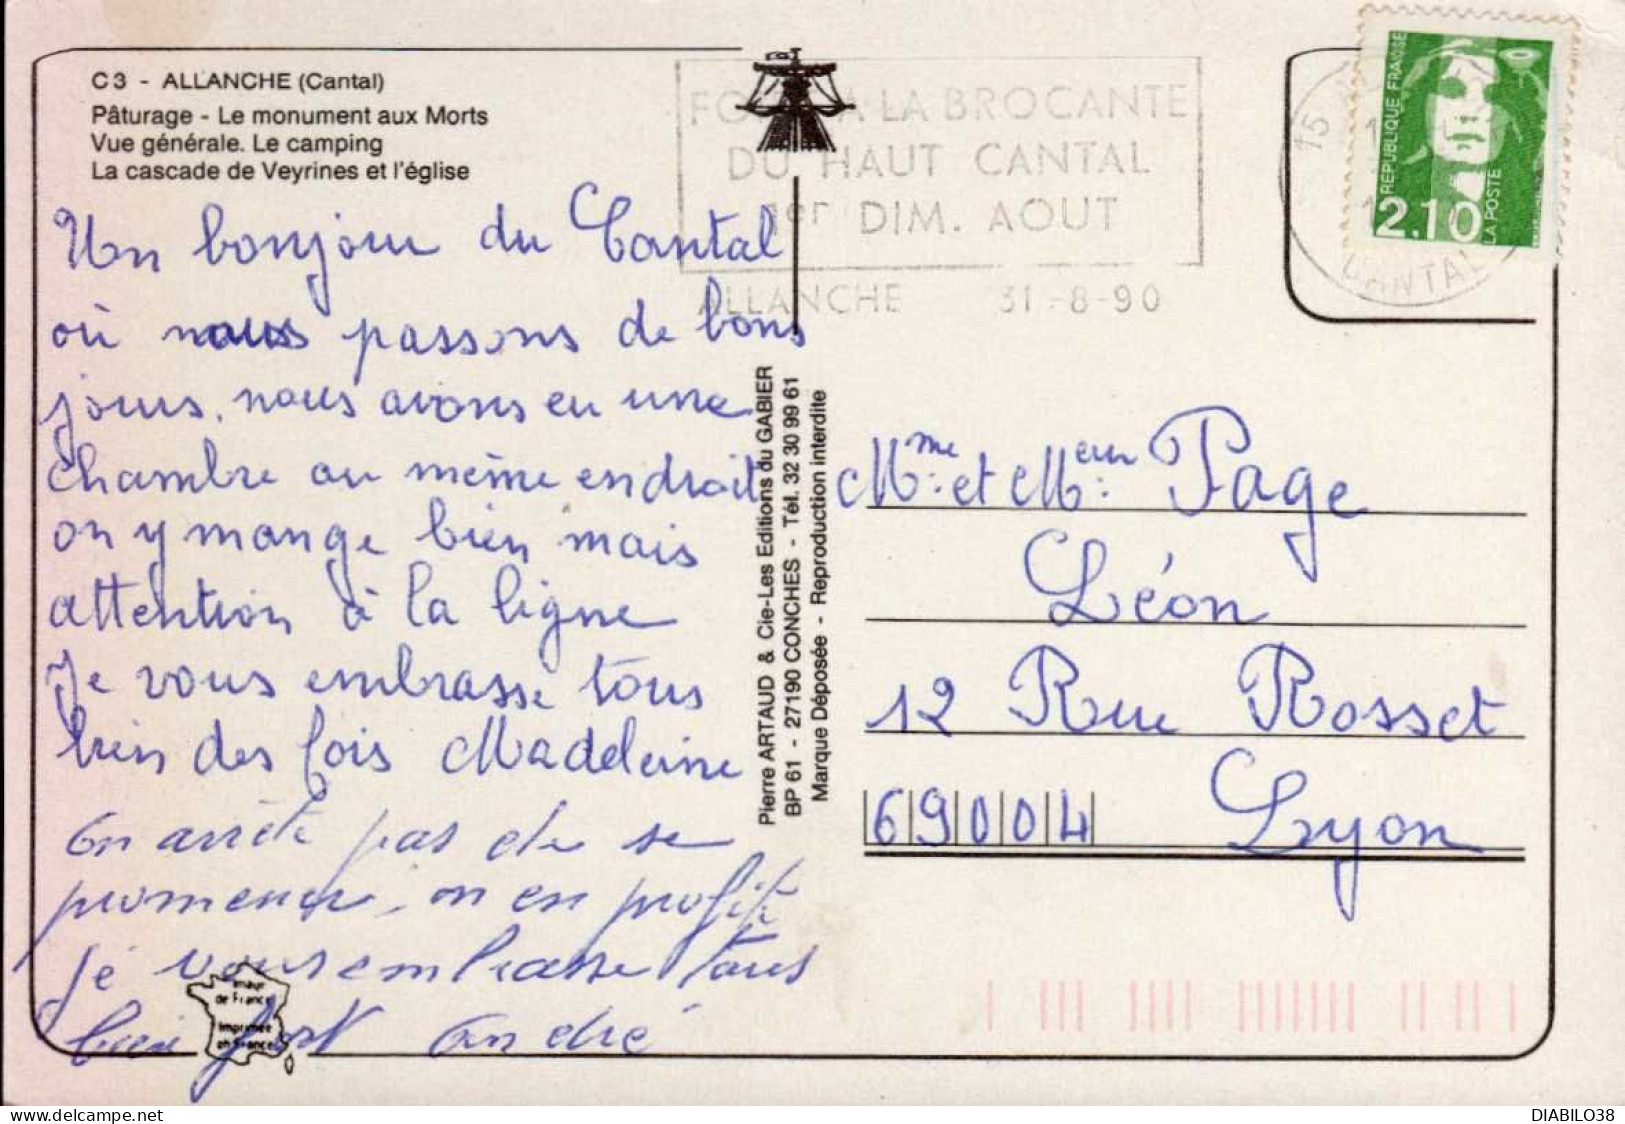 C 3 - ALLANCHE (Cantal)
Pâturage - Le monument aux Morts
Vue générale. Le camping
La cascade de Veyrines et l'église
Un bonjour du Cantal
où nous passons de bons
jours, nous avons eu une
chambre au même endroit
on y mange bien mais
attention à la ligne
Je vous embrasse tous
bien des fois Madeleine
On arrête pas de se
promener, on en profite
Je vous embrasse tous
bien fort André
Image
de France
Imprimée
en France
Pierre ARTAUD & Cie-Les Editions du GABIER
BP 61 - 27190 CONCHES - Tél. 32 30 99 61
Marque Déposée - Reproduction interdite
A LA BROCANTE
DU HAUT CANTAL
1er DIM. AOUT
ALLANCHE 31-8-90
15
CANTAL
REPUBLIQUE FRANÇAISE
2.10
LA POSTE
Mme et Meur Page
Léon
12 Rue Rosset
69004 Lyon
DIABILO38